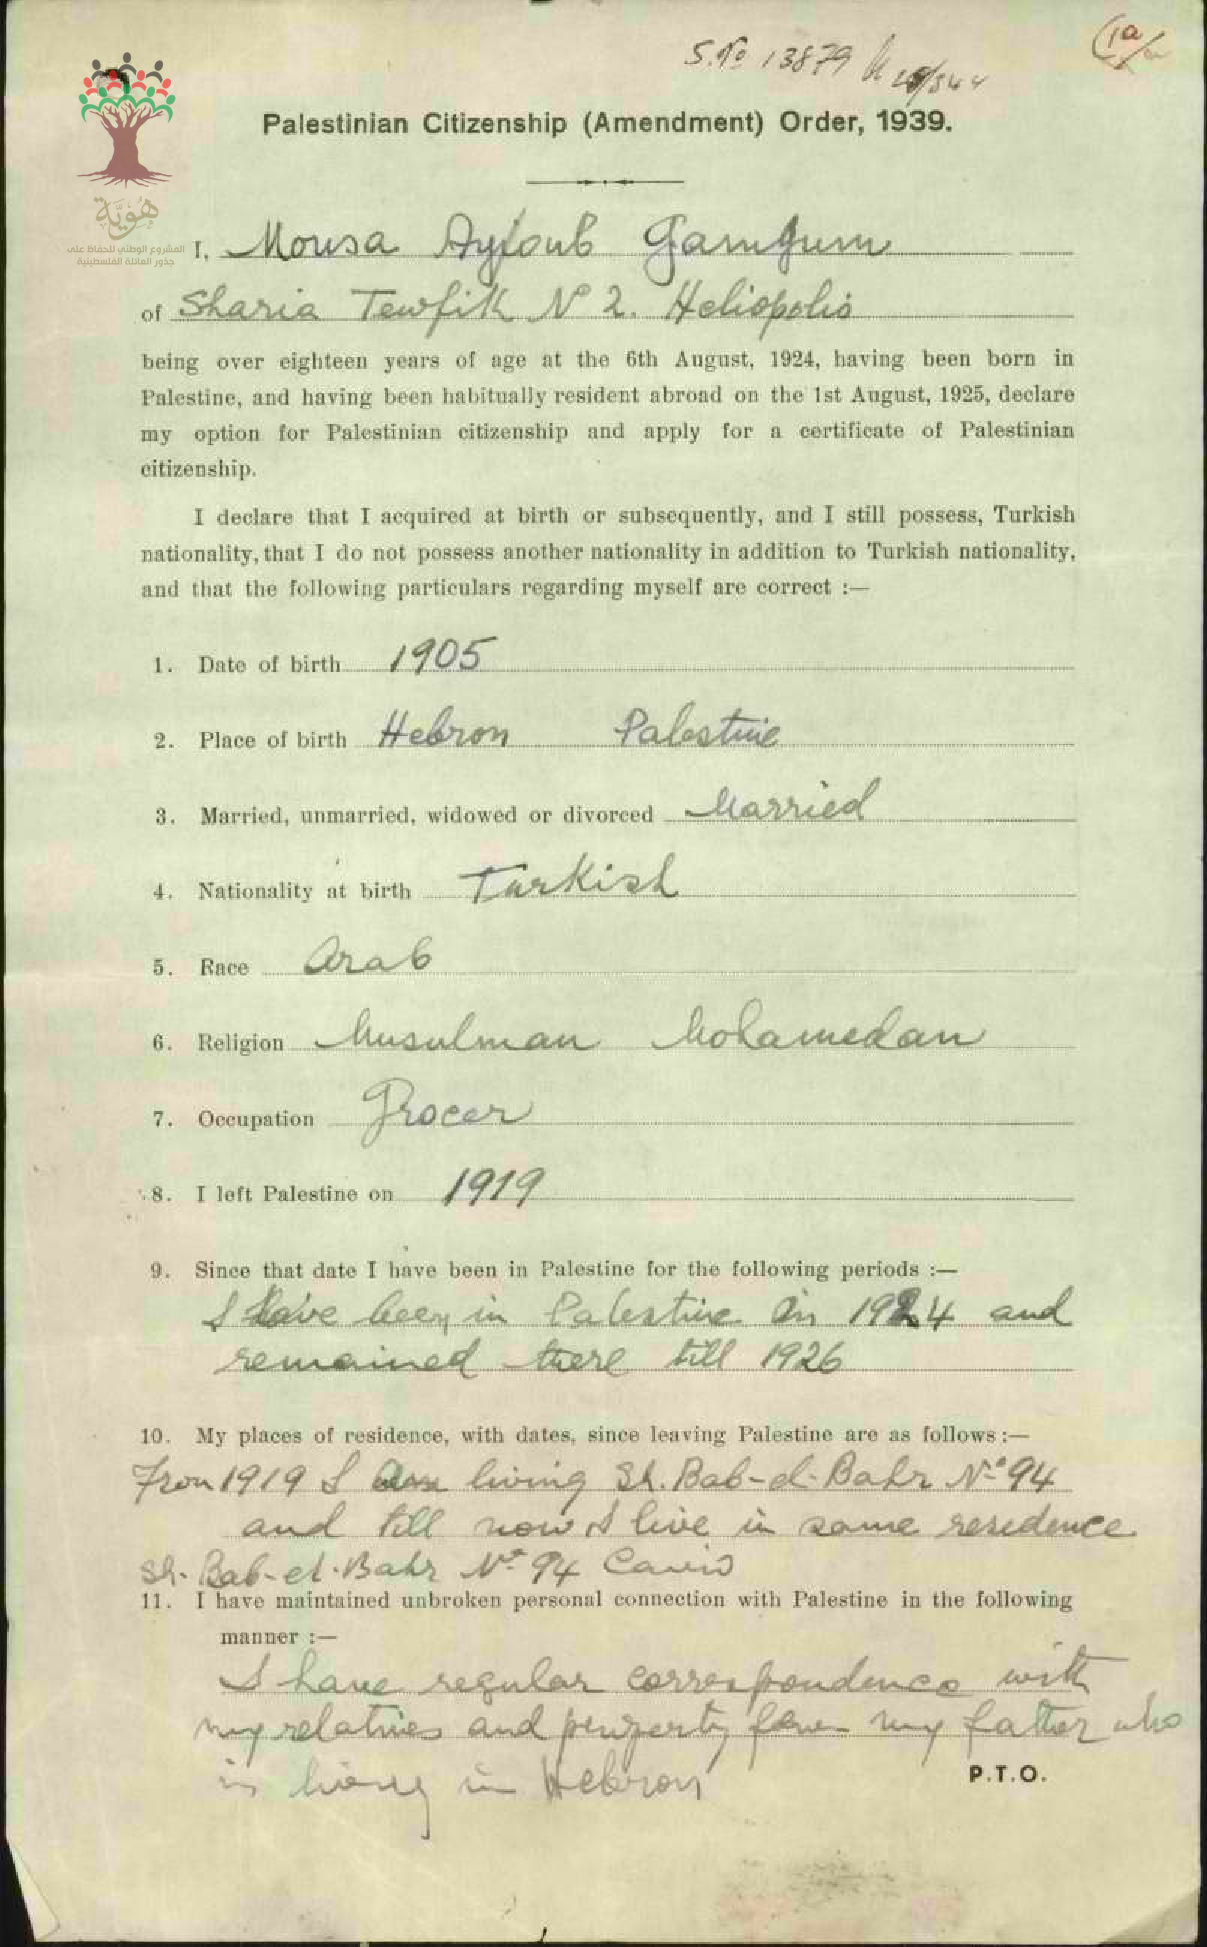 S. No 13879
1a
Palestinian Citizenship (Amendment) Order, 1939.
هوية
المشروع الوطني للحفاظ على
جذور العائلة الفلسطينية
I, Mousa Ayoub Gamgum
of Sharia Tewfik No 2. Heliopolis
being over eighteen years of age at the 6th August, 1924, having been born in
Palestine, and having been habitually resident abroad on the 1st August, 1925, declare
my option for Palestinian citizenship and apply for a certificate of Palestinian
citizenship.
I declare that I acquired at birth or subsequently, and I still possess, Turkish
nationality, that I do not possess another nationality in addition to Turkish nationality,
and that the following particulars regarding myself are correct :—
1. Date of birth 1905
2. Place of birth Hebron Palestine
3. Married, unmarried, widowed or divorced Married
4. Nationality at birth Turkish
5. Race Arab
6. Religion Musulman Mohamedan
7. Occupation Grocer
8. I left Palestine on 1919
9. Since that date I have been in Palestine for the following periods :—
I have been in Palestine in 1924 and
remained there till 1926
10. My places of residence, with dates, since leaving Palestine are as follows :—
From 1919 I living Sh. Bab-el-Bahr No 94
and till now I live in same residence
Sh. Bab-el-Bahr No 94 Cairo
11. I have maintained unbroken personal connection with Palestine in the following
manner :—
I have regular correspondence with
my relatives and my father who
is living in Hebron
P.T.O.